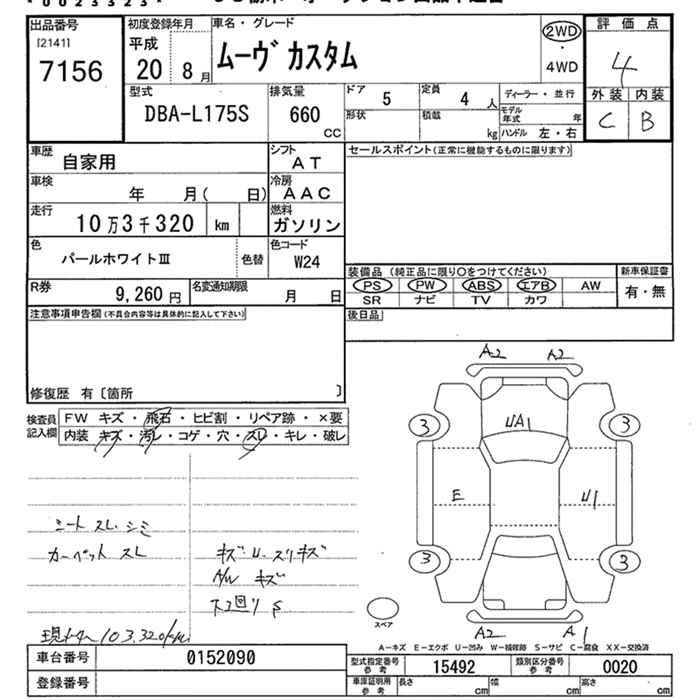 *0023323*
出品番号 初度登録年月 車名・グレード 評価点
[2141] 平成 ムーヴ カスタム 2WD ・ 4WD 4
7156 20 8月
型式 排気量 ドア 定員 ディーラー・並行 外装 内装
DBA-L175S 660 CC 5 4人 モデル年式 年 C B
形状 積載 kg ハンドル 左・右
車歴 自家用 シフト AT セールスポイント(正常に機能するものに限ります)
車検 年 月( 日) 冷房 AAC
走行 10万3千320 km 燃料 ガソリン
色 パールホワイトⅢ 色替 色コード W24
装備品(純正品に限り○をつけてください) 新車保証書
R券 9,260円 名変通知期限 月 日 PS PW ABS エアB AW 有・無
SR ナビ TV カワ
注意事項申告欄(不具合内容等は具体的に記入して下さい) 後日品
修復歴 有〔箇所 〕
A2 A2
検査員記入欄 FW キズ・飛石・ヒビ割・リペア跡・×要
内装 キズ・汚レ・コゲ・穴・スレ・キレ・破レ
3 UA1 3
E U1
シート スレ シミ
カーペット スレ キズ U スリキズ
A/W キズ
3 3
スペア
A2 A1
A-キズ E-エクボ U-凹み W-補修跡 S-サビ C-腐食 XX-交換済
車台番号 0152090 型式指定番号 参考 15492 類別区分番号 参考 0020
登録番号 車庫証明用 参考 長さ cm 幅 cm 高さ cm